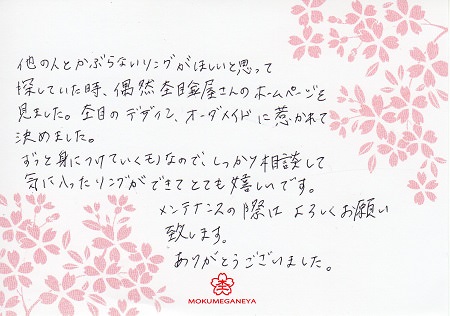 他の人とかぶらないリングがほしいと思って
探していた時、偶然杢目金屋さんのホームページを
見ました。杢目のデザイン、オーダーメイドに惹かれて
決めました。
ずっと身につけていくものなので、しっかり相談して
気に入ったリングができてとても嬉しいです。
メンテナンスの際は よろしくお願い
致します。
ありがとうございました。
杢
MOKUMEGANEYA